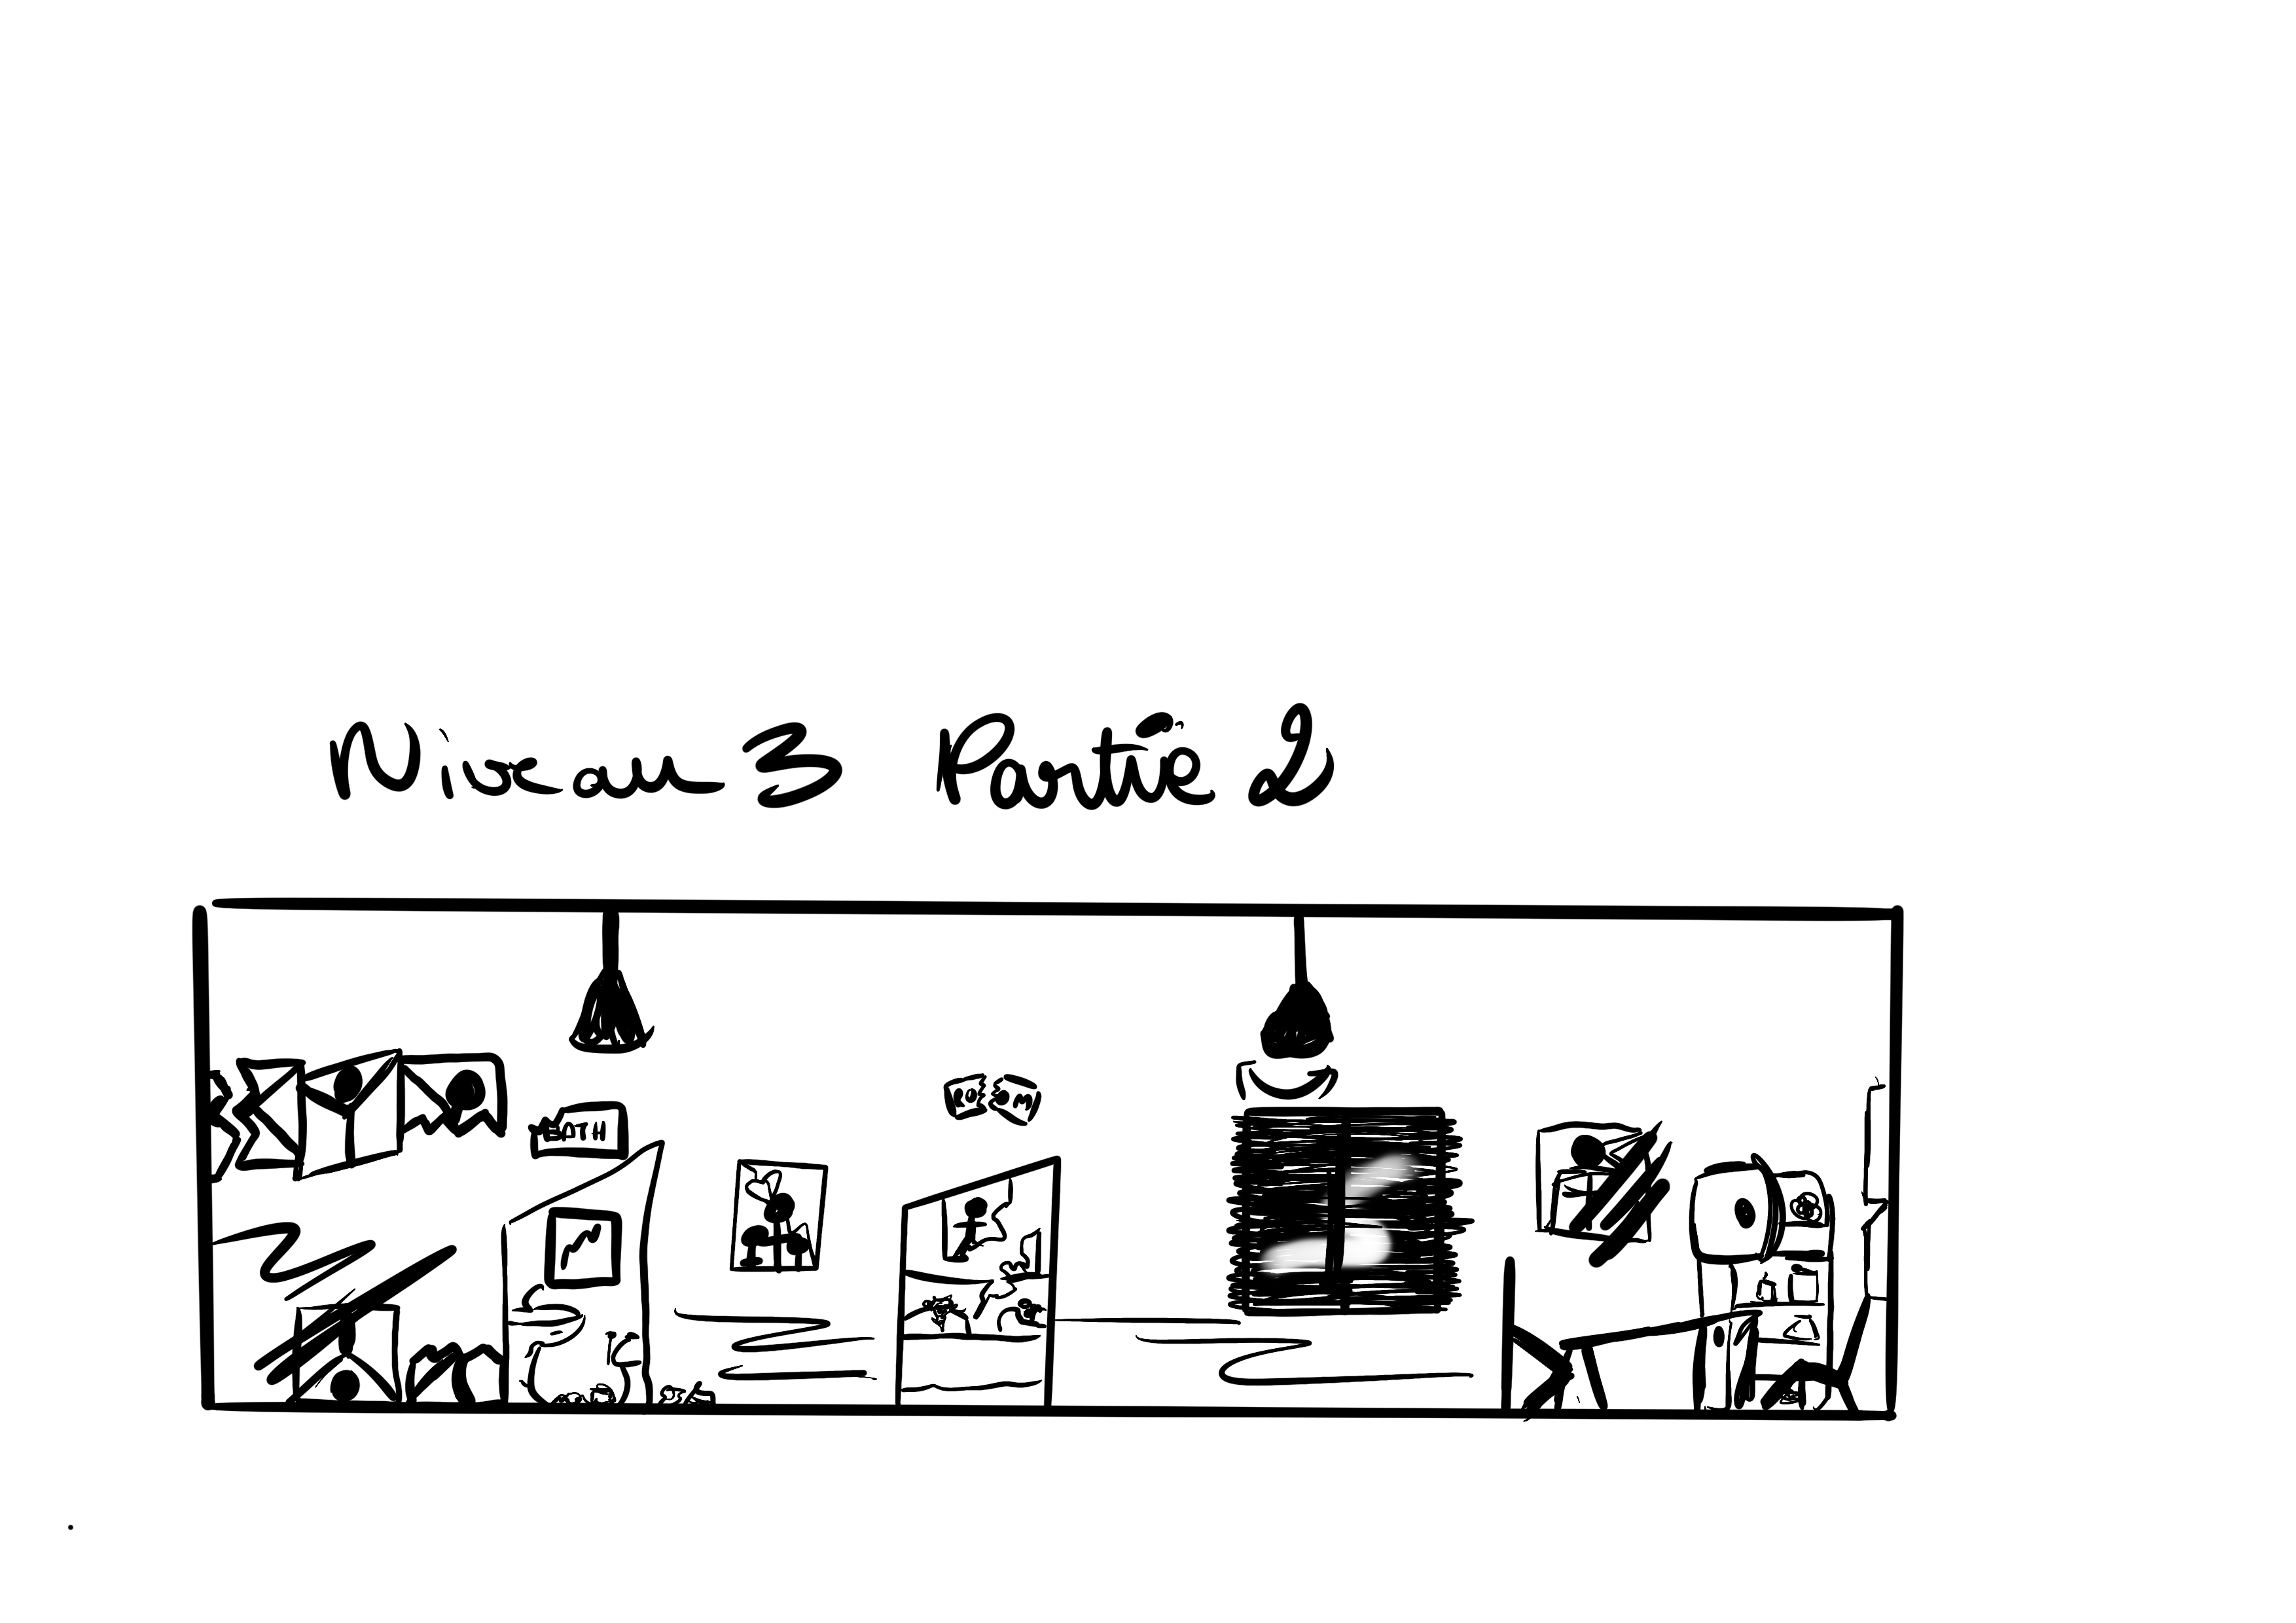 Niveau 3 Partie 2
BATH
ROOM